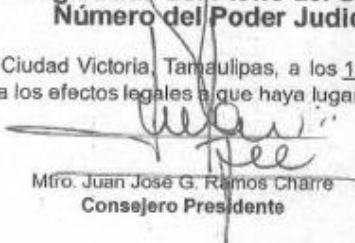 Número del Poder Judic
Ciudad Victoria, Tamaulipas, a los 1
a los efectos legales a que haya lugar
Mtro. Juan José G. Ramos Charre
Consejero Presidente